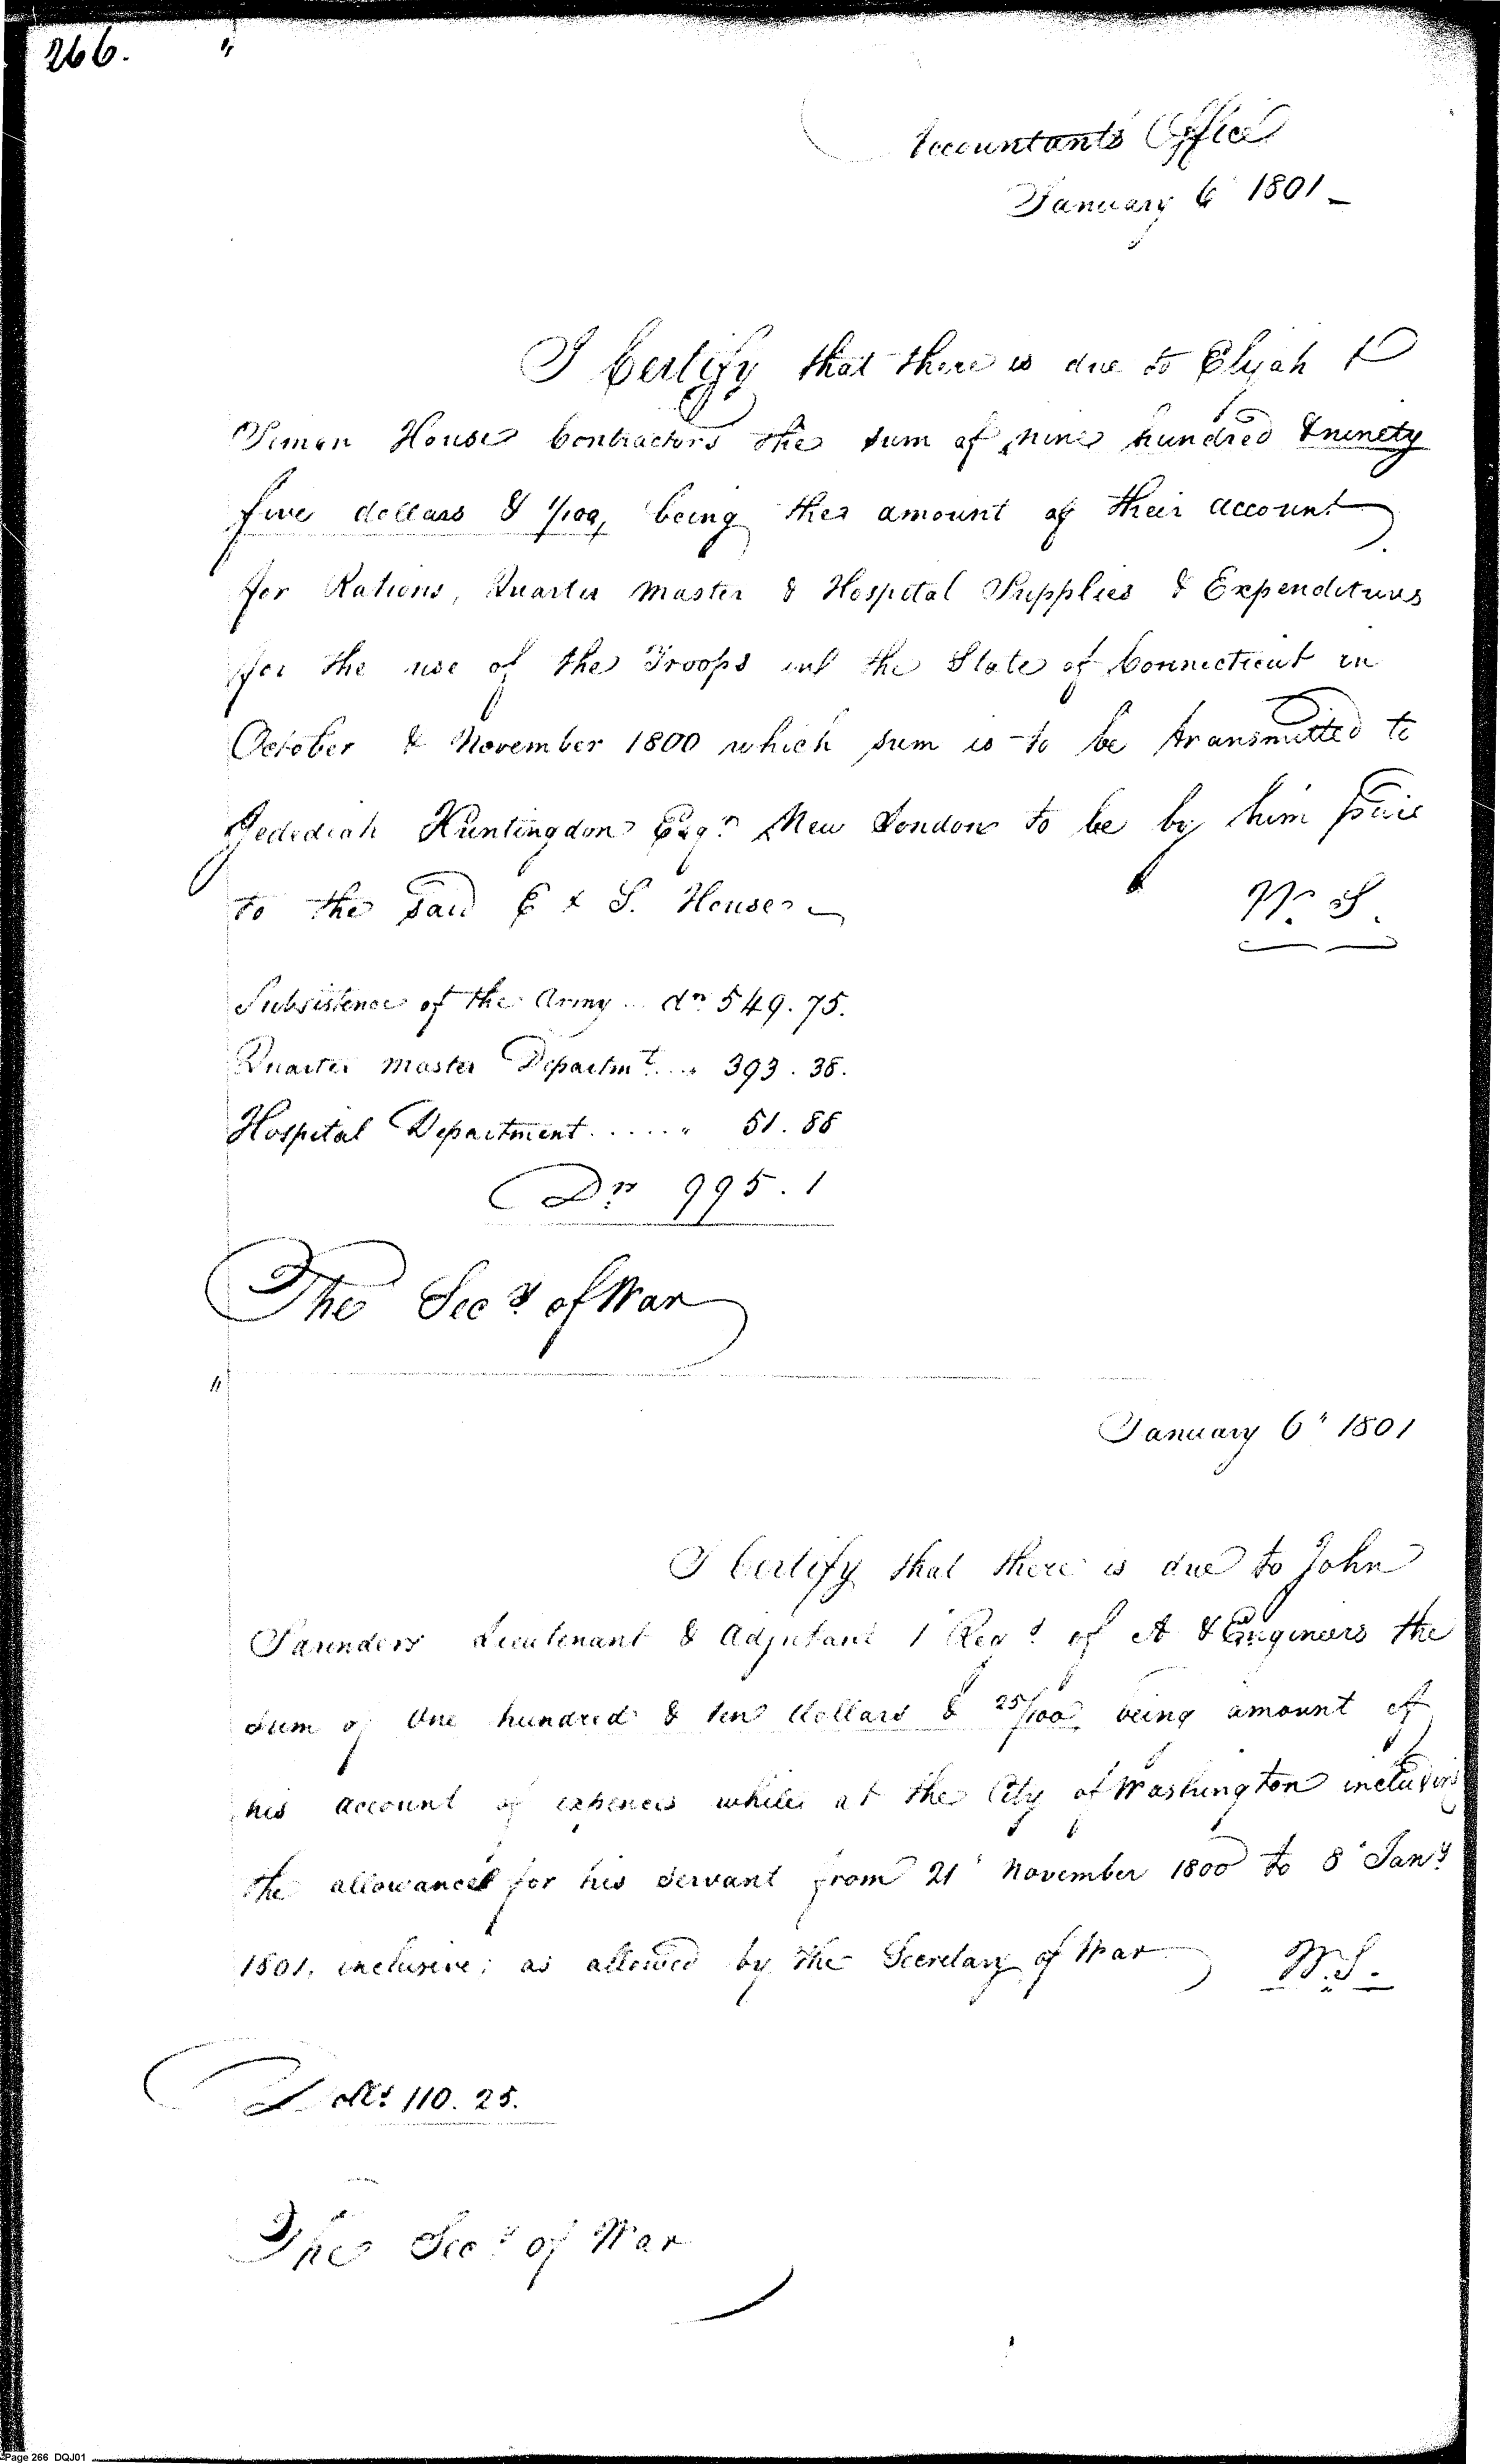 266.
"
Accountants Office
January 6 1801
I Certify that there is due to Elijah &
Simon House Contractors the sum of nine hundred & ninety
five dollars & 1/100, being the amount of their account
for Rations, Quarter Master & Hospital Supplies & Expenditures
for the use of the Troops in the State of Connecticut in
October & November 1800 which sum is to be transmitted to
Jedediah Huntingdon Esqr. New London to be by him paid
to the said E & S. House
W. S.
Subsistence of the Army .. drs 549.75.
Quarter Master Departmt. .. " 393.38.
Hospital Department ...... " 51.88
Drs 995.1
The Secy of War
"
January 6" 1801
I Certify that there is due to John
Saunders Lieutenant & Adjutant 1 Regt of A & Engineers the
sum of One hundred & ten dollars & 25/100 being amount of
his account of expences while at the City of Washington including
the allowance for his servant from 21 November 1800 to 8 Jany
1801, inclusive; as allowed by the Secretary of War
W.S.
Dolls 110.25.
The Secy of War
Page 266 DQJ01